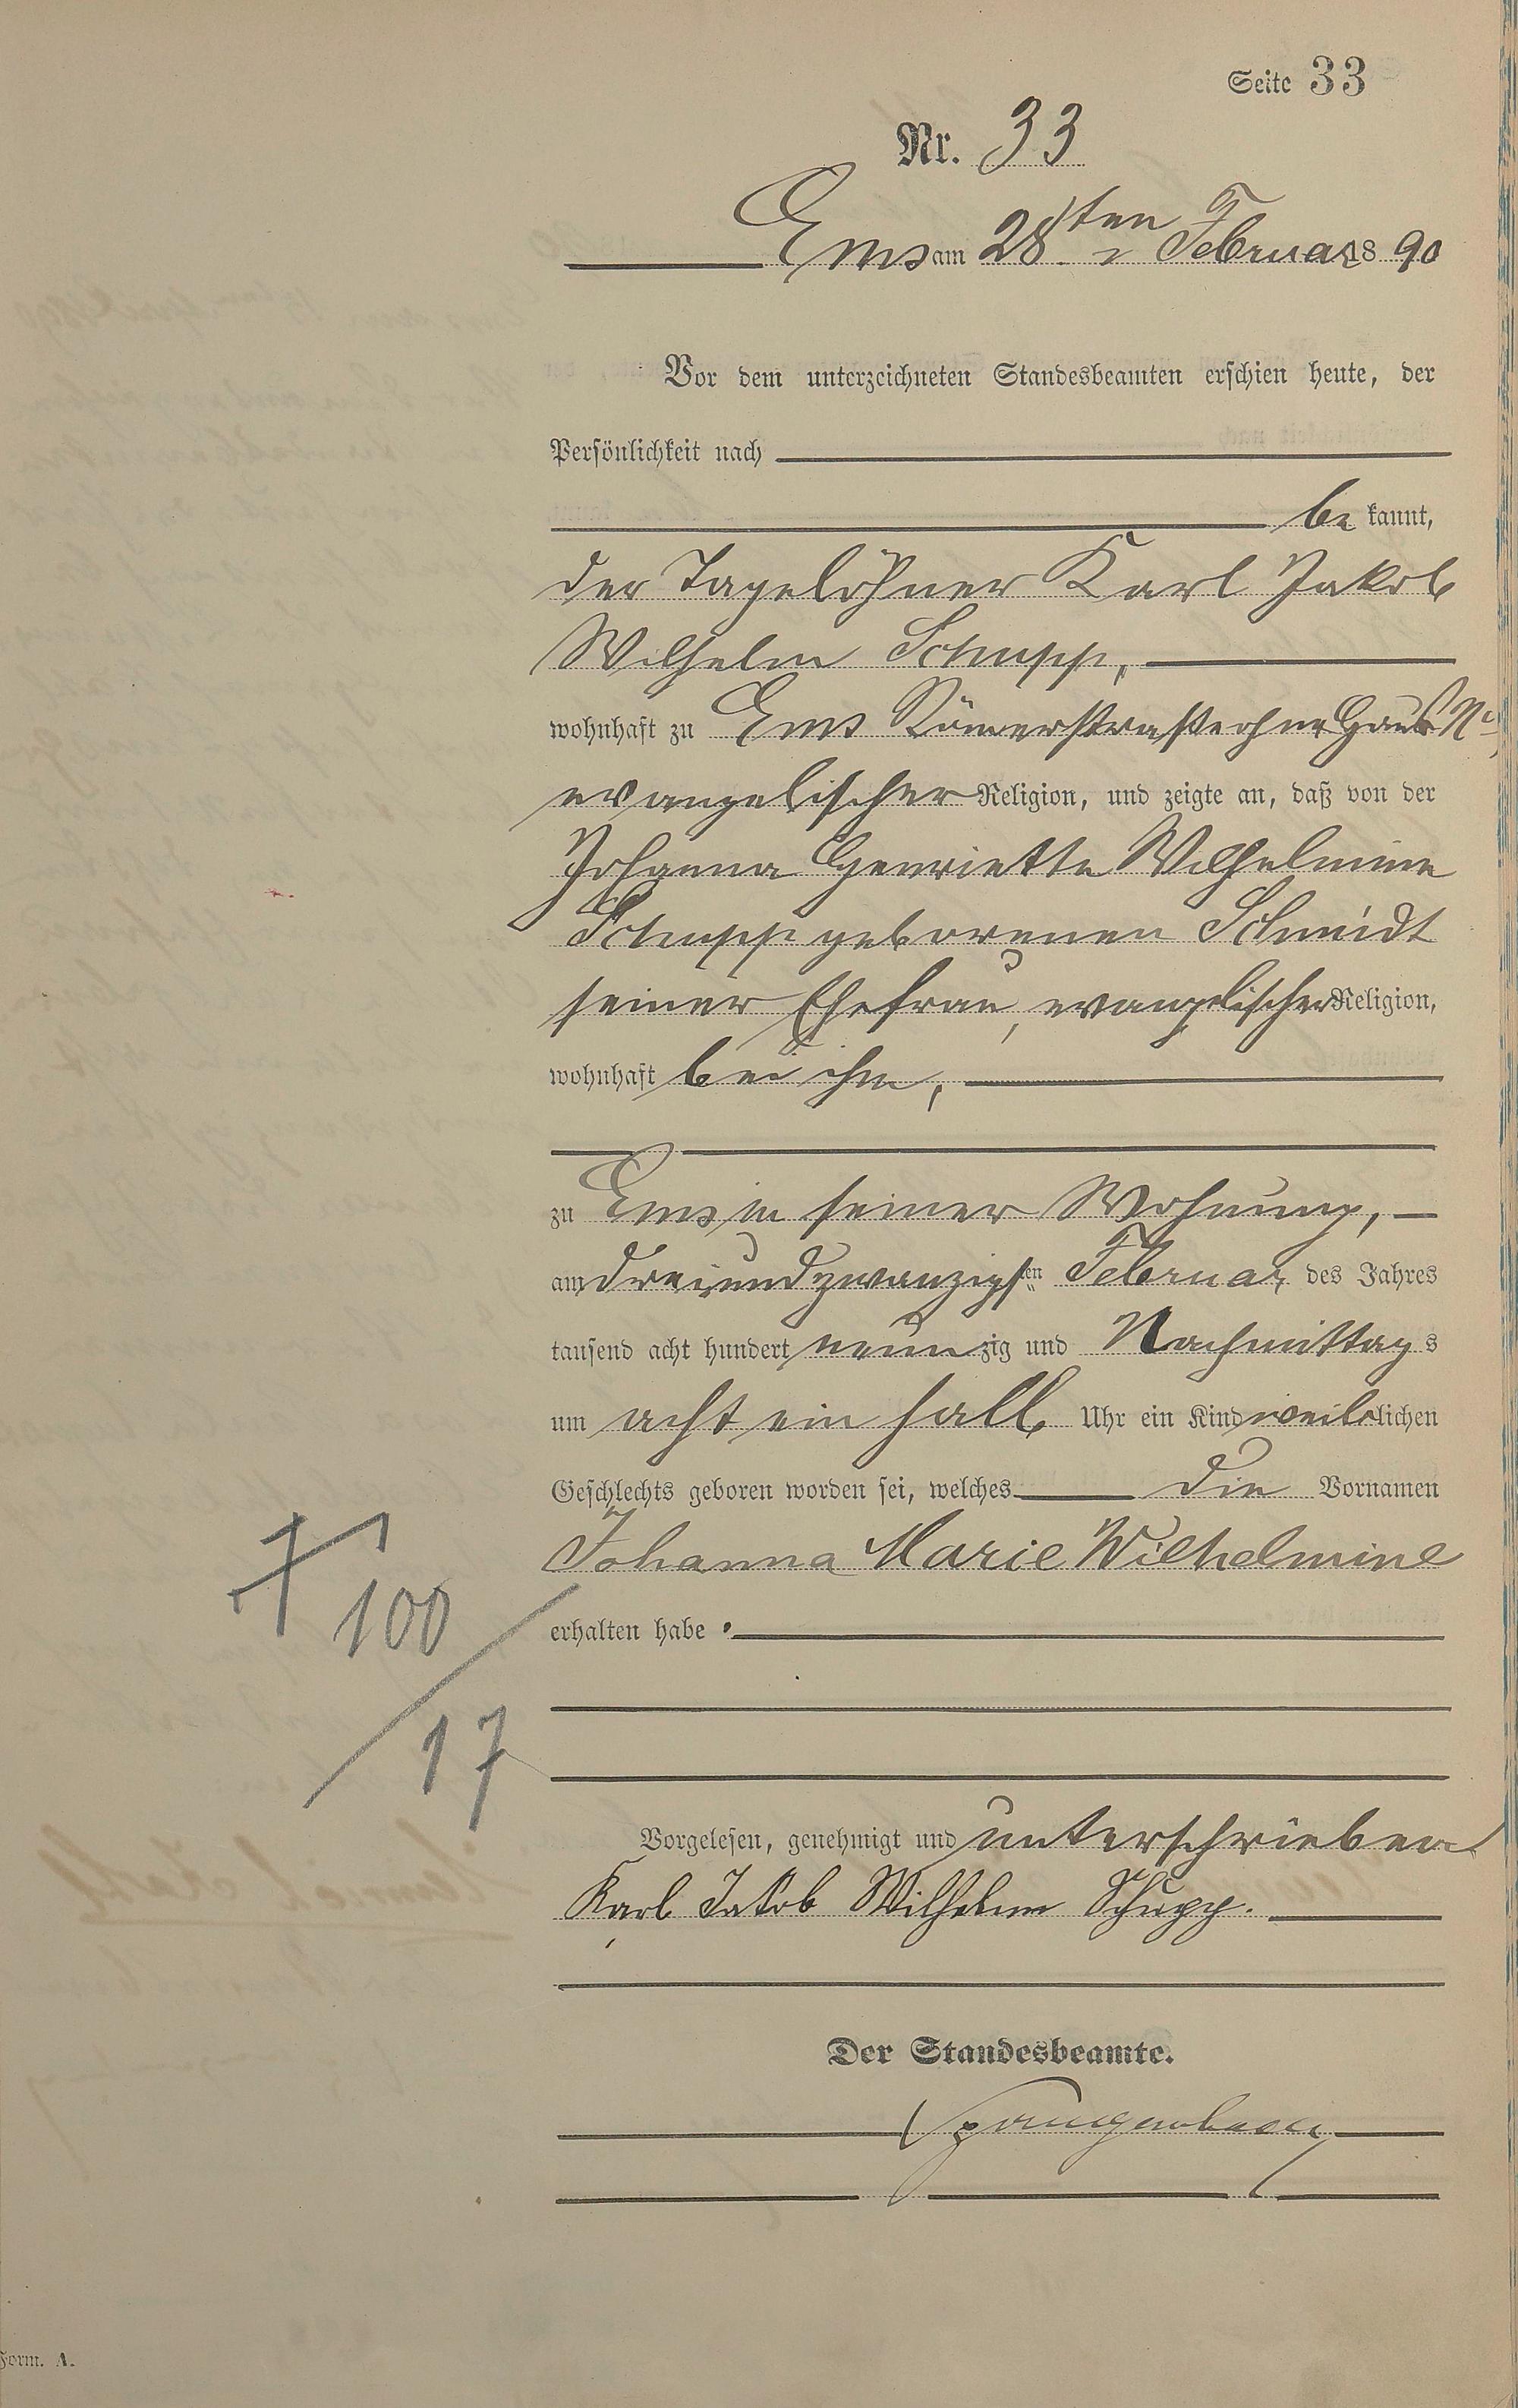 Seite 33
Nr. 33
Ems am 28ten Februar 1890
Vor dem unterzeichneten Standesbeamten erschien heute, der
Persönlichkeit nach
bekannt,
der Tagelöhner Karl Jakob
Wilhelm Schupp,
wohnhaft zu Ems Römerstraße ohne Haus No,
evangelischer Religion, und zeigte an, daß von der
Johanna Henriette Wilhelmine
Schupp geborenen Schmidt
seiner Ehefrau, evangelischer Religion,
wohnhaft bei ihm,
zu Ems in seiner Wohnung,
am dreiundzwanzigsten Februar des Jahres
tausend acht hundert neunzig und Nachmittags
um acht ein halb Uhr ein Kind weiblichen
Geschlechts geboren worden sei, welches die Vornamen
Johanna Marie Wilhelmine
erhalten habe.
† 100
/ 17
Vorgelesen, genehmigt und unterschrieben
Karl Jakob Wilhelm Schupp.
Der Standesbeamte.
Form. A.